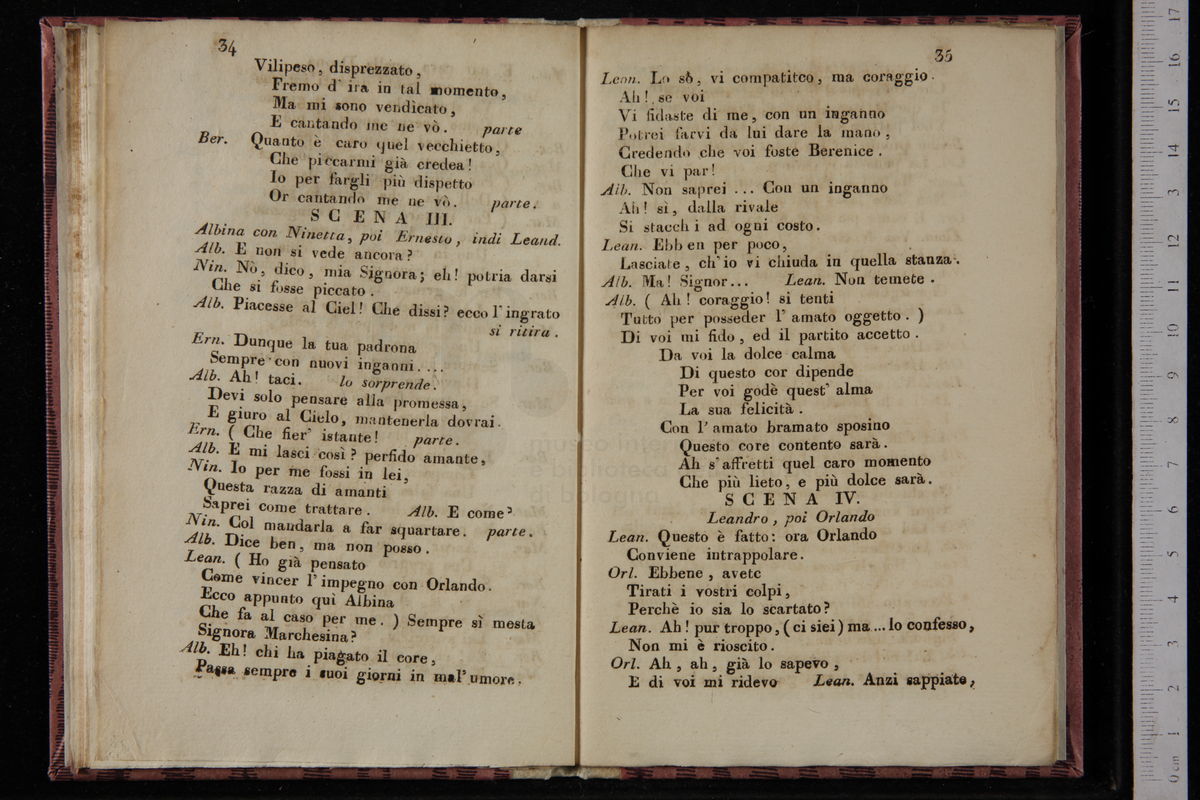 34
Vilipeso, disprezzato,
Fremo d' ira in tal momento,
Ma mi sono vendicato,
E cantando me ne vò. parte
Ber. Quanto è caro quel vecchietto,
Che piccarmi già credea!
Io per fargli più dispetto
Or cantando me ne vò. parte.
SCENA III.
Albina con Ninetta, poi Ernesto, indi Leand.
Alb. E non si vede ancora?
Nin. Nò, dico, mia Signora; eh! potria darsi
Che si fosse piccato.
Alb. Piacesse al Ciel! Che dissi? ecco l'ingrato
si ritira.
Ern. Dunque la tua padrona
Sempre con nuovi inganni....
Alb. Ah! taci. lo sorprende.
Devi solo pensare alla promessa,
E giuro al Cielo, mantenerla dovrai.
Ern. ( Che fier' istante! parte.
Alb. E mi lasci così? perfido amante,
Nin. Io per me fossi in lei,
Questa razza di amanti
Saprei come trattare. Alb. E come?
Nin. Col mandarla a far squartare. parte.
Alb. Dice ben, ma non posso.
Lean. ( Ho già pensato
Come vincer l'impegno con Orlando.
Ecco appunto quì Albina
Che fa al caso per me. ) Sempre sì mesta
Signora Marchesina?
Alb. Eh! chi ha piagato il core,
Passa sempre i suoi giorni in mal'umore.
35
Lean. Lo sò, vi compatitco, ma coraggio.
Ah! se voi
Vi fidaste di me, con un inganno
Potrei farvi da lui dare la mano,
Credendo che voi foste Berenice.
Che vi par!
Alb. Non saprei ... Con un inganno
Ah! sì, dalla rivale
Si stacchi ad ogni costo.
Lean. Ebben per poco,
Lasciate, ch'io vi chiuda in quella stanza.
Alb. Ma! Signor... Lean. Non temete.
Alb. ( Ah! coraggio! si tenti
Tutto per posseder l' amato oggetto. )
Di voi mi fido, ed il partito accetto.
Da voi la dolce calma
Di questo cor dipende
Per voi godè quest' alma
La sua felicità.
Con l' amato bramato sposino
Questo core contento sarà.
Ah s'affretti quel caro momento
Che più lieto, e più dolce sarà.
SCENA IV.
Leandro, poi Orlando
Lean. Questo è fatto: ora Orlando
Conviene intrappolare.
Orl. Ebbene, avete
Tirati i vostri colpi,
Perchè io sia lo scartato?
Lean. Ah! pur troppo, (ci siei) ma... lo confesso,
Non mi è rioscito.
Orl. Ah, ah, già lo sapevo,
E di voi mi ridevo Lean. Anzi sappiate,